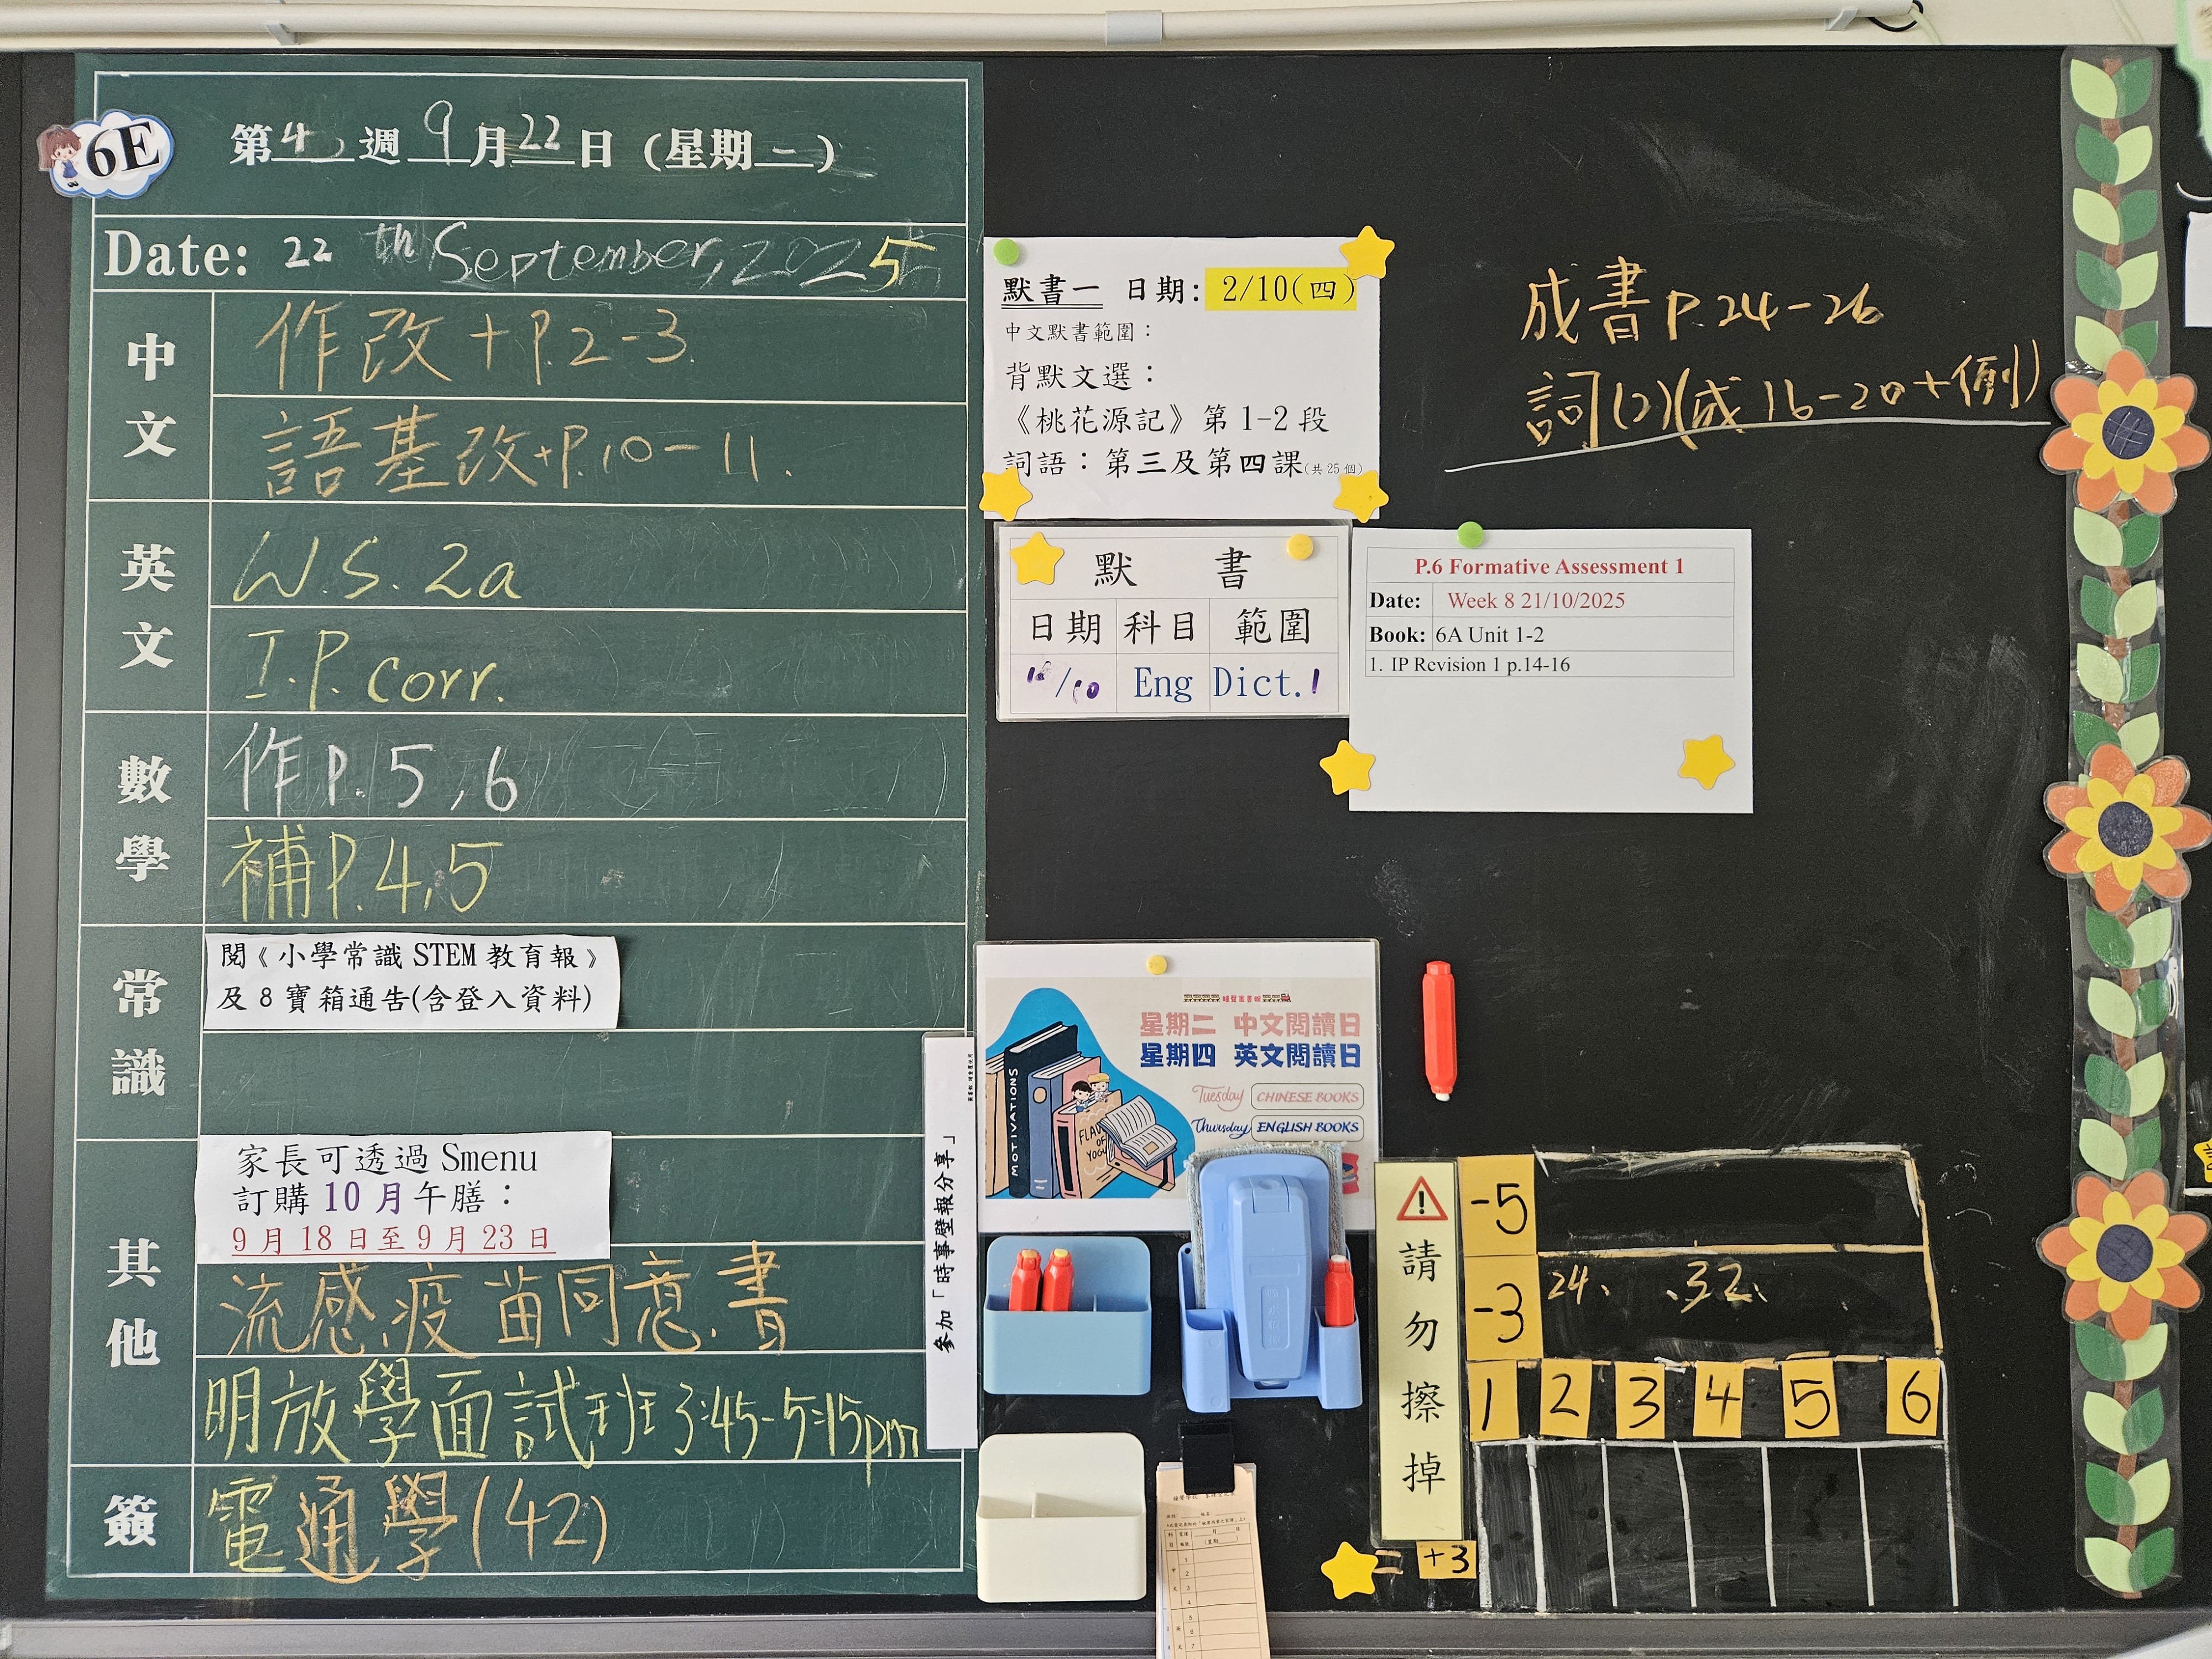 6E
第4週 9月22日 (星期一)
Date: 22 th September, 2025
中文
作改+P.2-3
語基改+P.10-11.
英文
W.S. 2a
I.P. corr.
數學
作P. 5,6
補P.4,5
常識
閱《小學常識 STEM 教育報》
及 8 寶箱通告(含登入資料)
其他
家長可透過 Smenu
訂購 10 月午膳：
9 月 18 日至 9 月 23 日
流感疫苗同意書
明放學面試班 3:45-5:15pm
簽
電通學(42)
參加「時事壁報分享」
默書一 日期: 2/10(四)
中文默書範圍：
背默文選：
《桃花源記》第 1-2 段
詞語：第三及第四課(共 25 個)
默 書
日期 科目 範圍
/10 Eng Dict.1
成書 P.24-26
詞(2)(成 16-20+例)
P.6 Formative Assessment 1
Date: Week 8 21/10/2025
Book: 6A Unit 1-2
1. IP Revision 1 p.14-16
星期二 中文閱讀日
星期四 英文閱讀日
Tuesday CHINESE BOOKS
Thursday ENGLISH BOOKS
MOTIVATIONS
請勿擦掉
-5
-3 24、 、32、
1 2 3 4 5 6
= +3